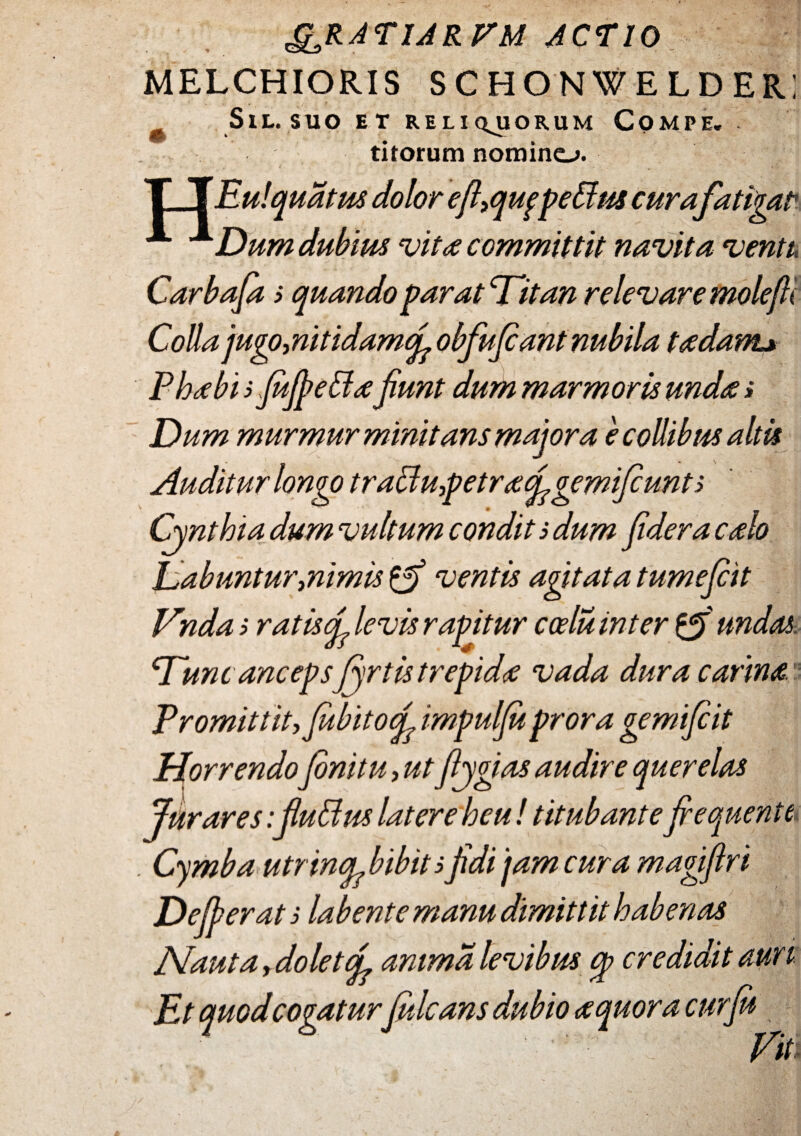 GRATIARVM ACTIO
MELCHIORIS SCHONWELDERI
SIL. SUO ET RELIQUORUM COMPE-
titorum nomine.
HEu! quātus dolor est, quę pectus cura fatigat
Dum dubius vitæ committit navita ventis
Carbasa; quando parat Titan relevare molesti
Colla jugo, nitidamq́; obfuscant nubila tædam
Phæbi; suspectæ fiunt dum marmoris undæ;
Dum murmur minitans majora è collibus altis
Auditur longo tractu, petræq́; gemiscunt;
Cynthia dum vultum condit; dum sidera cælo
Labuntur, nimis & ventis agitata tumescit
Vnda; ratisq́; levis rapitur cœlū inter & undas.
Tunc anceps syrtis trepidæ vada dura carinæ
Promittit, subitoq́; impulsu prora gemiscit
Horrendo sonitu, ut stygias audire querelas
Jurares: fluctus latere heu! titubante frequentes
Cymba utrinq́; bibit; fidi jam cura magistri
Desperat; labente manu dimittit habenas
Nauta, doletq́; animā levibus ꝙ credidit auris
Et quod cogatur sulcans dubio æquora cursu
Vit